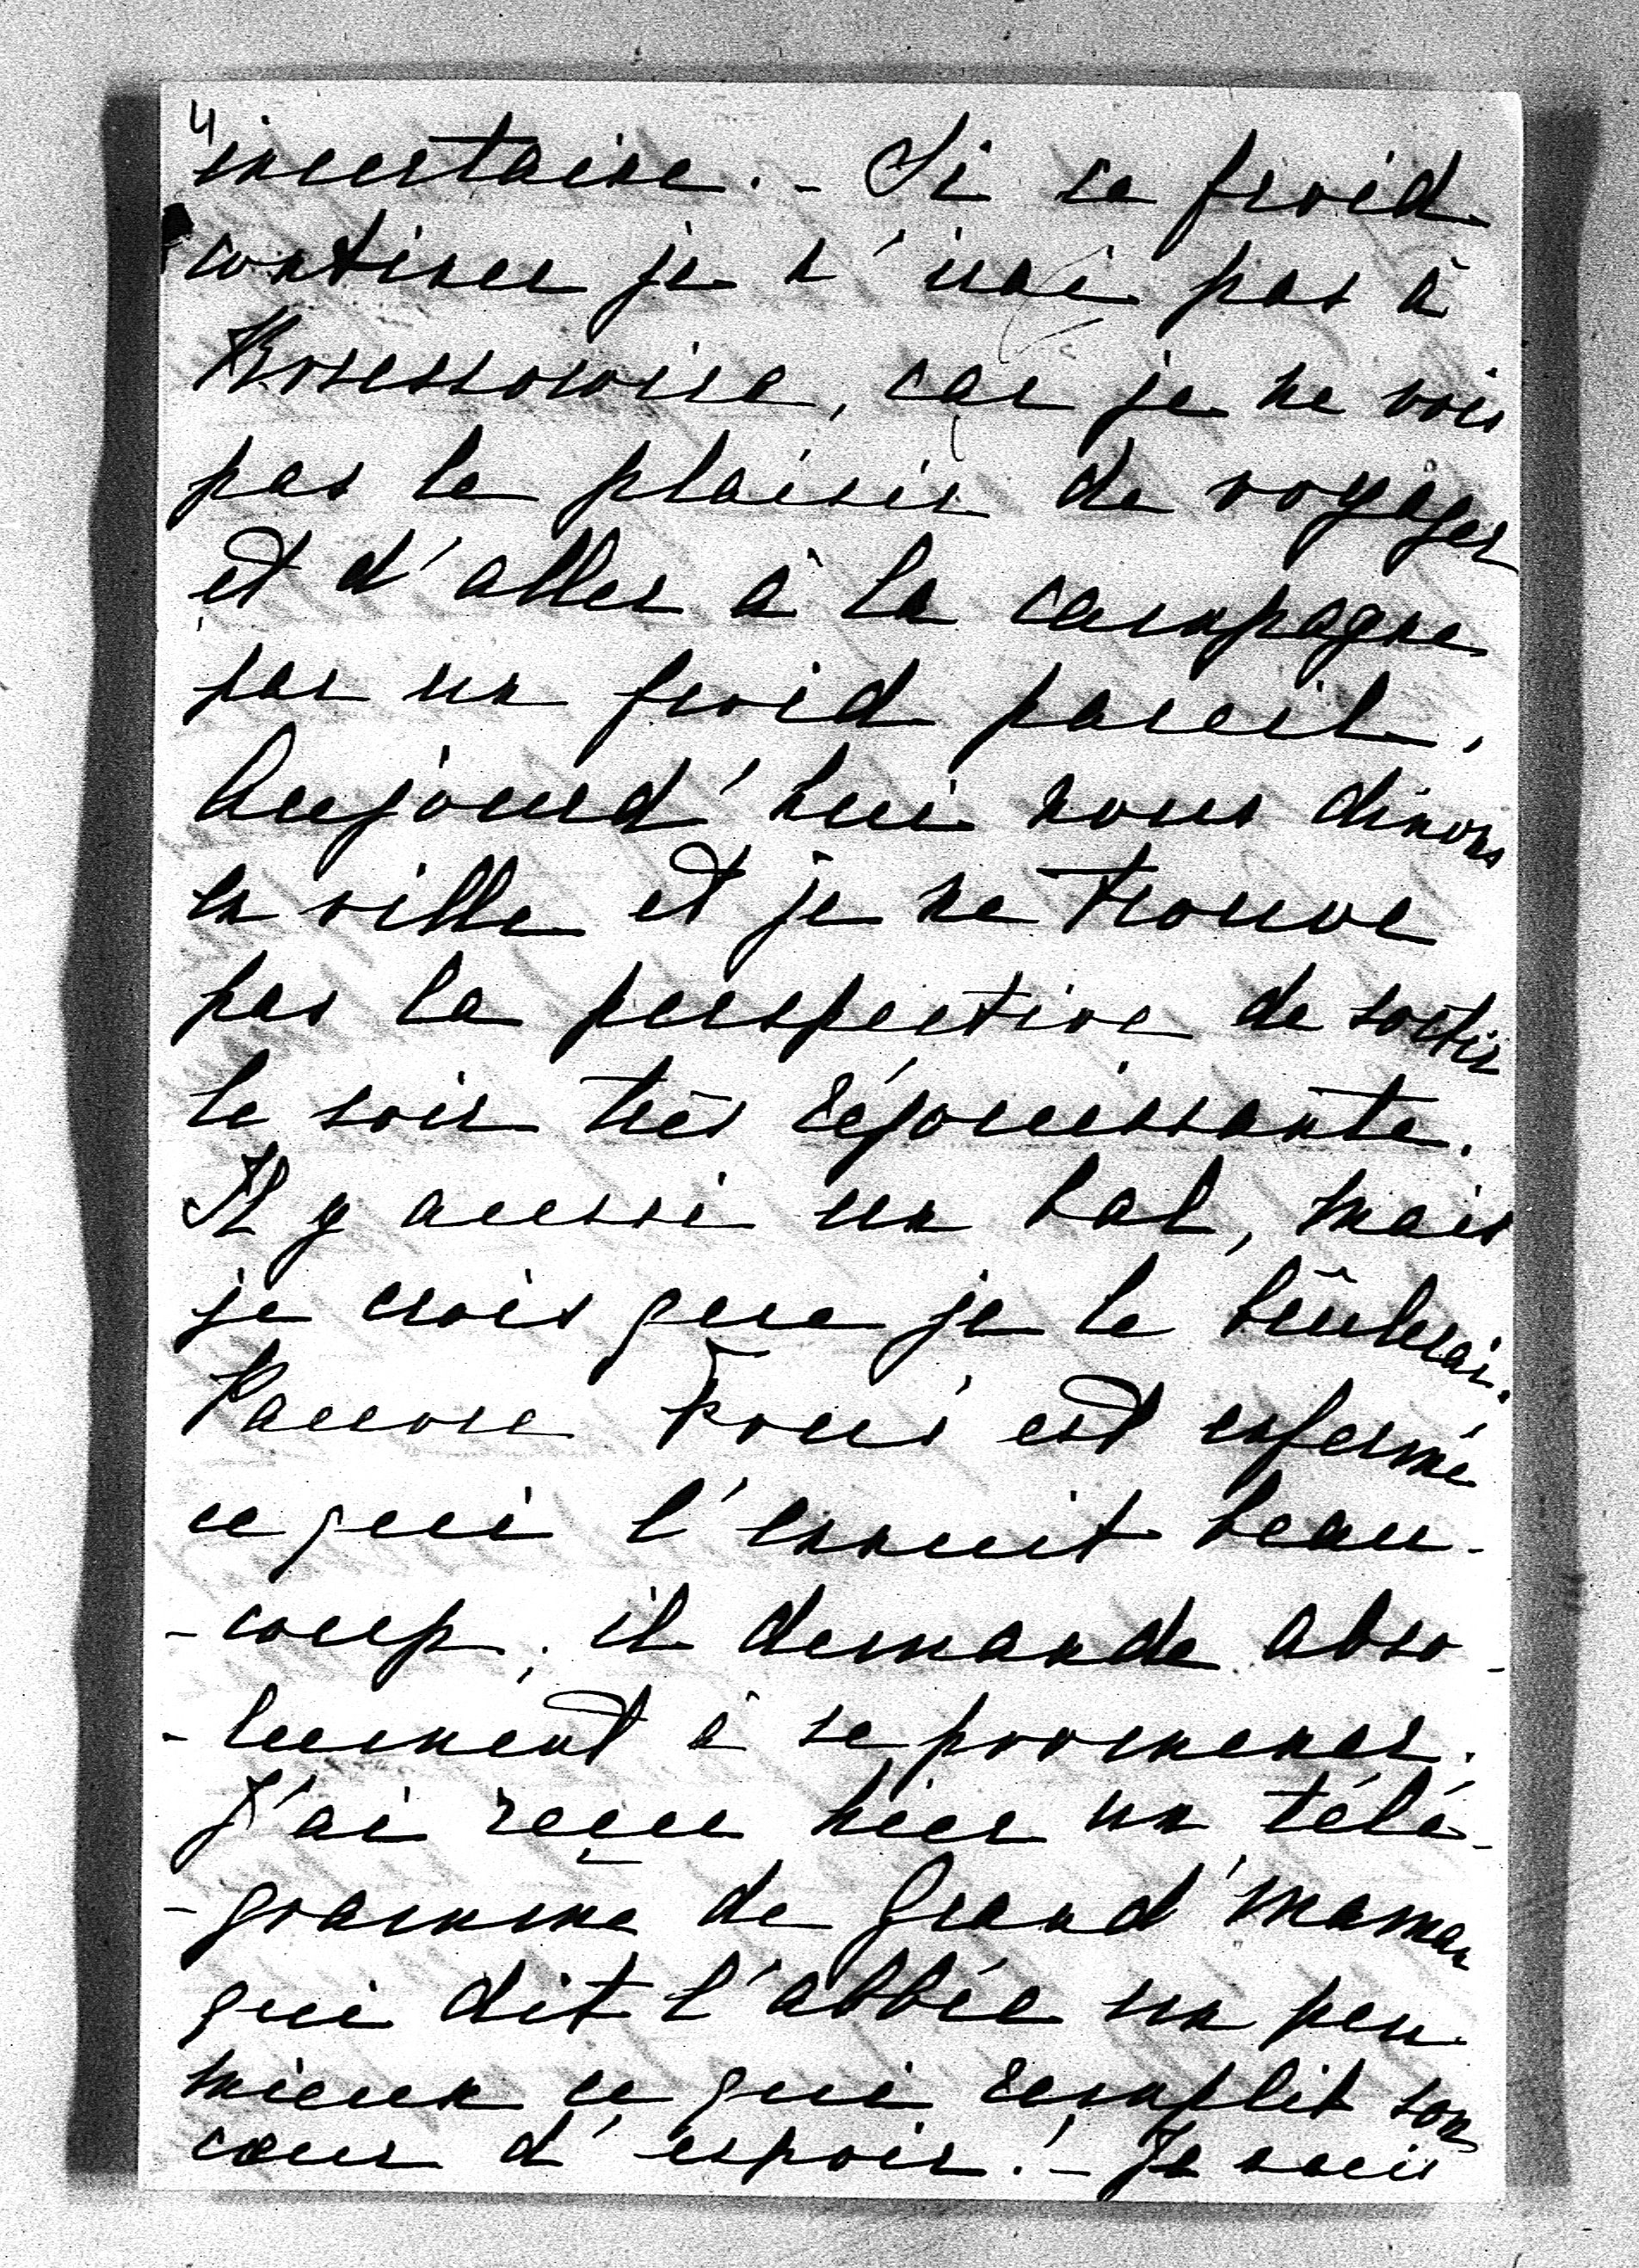 4
incertaine. - Si ce froid
continue je n'irai pas à
car je ne vois
pas le plaisir de voyager
et d'aller à la campagne
par un froid pareil.
Aujourd'hui nous dinons
en ville et je ne trouve
pas la perspective de sortir
le soir très réjouissante.
Il y aussi un bal, mais
je crois que je le brûlerai.
Pauvre est enfermé
ce qui l'ennuit beau-
-coup; il demande abso-
-lument à se promener.
J'ai reçu hier un télé-
-gramme de Grand'maman
qui dit l'abbée un peu
mieux ce qui remplit son
cœur d'espoir! - Je suis